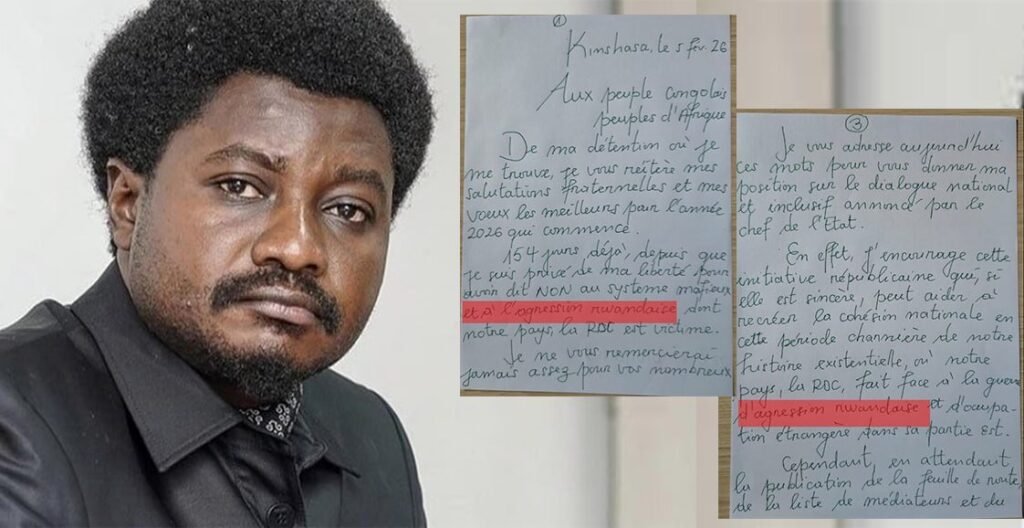 1
Kinshasa, le 5 fév. 26
Aux peuple congolais
peuples d'Afrique
De ma détention où je
me trouve, je vous réitère mes
salutations fraternelles et mes
voeux les meilleurs pour l'année
2026 qui commence.
154 jours déjà, depuis que
je suis privé de ma liberté pour
avoir dit NON au système mafieux
et à l'agression rwandaise dont
notre pays, la RDC est victime.
Je ne vous remercierai
jamais assez pour vos nombreux
3
Je vous adresse aujourd'hui
ces mots pour vous donner ma
position sur le dialogue national
et inclusif annoncé par le
chef de l'Etat.
En effet, j'encourage cette
initiative républicaine qui, si
elle est sincère, peut aider à
recréer la cohésion nationale en
cette période charnière de notre
histoire existentielle, où notre
pays, la RDC, fait face à la guerre
d'agression rwandaise et d'occupa-
tion étrangère dans sa partie est.
Cependant, en attendant
la publication de la feuille de route,
de la liste de médiateurs et du